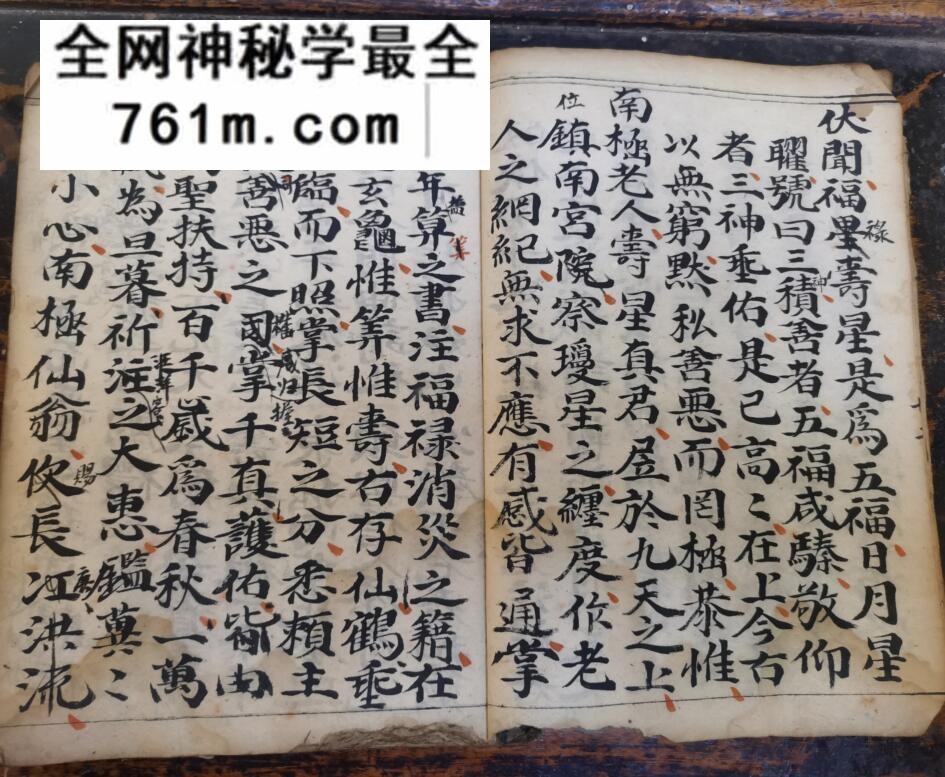 全网神秘学最全
761m.com
伏聞福星壽星是爲五福日月星
祿
曜號曰三積善者五福咸臻敬仰
神
者三神垂佑是已高〻在上今右
以無窮默私善惡而罔極恭惟
南極老人壽星真君居於九天之上
位
鎮南宮院察璦星之纏度作老
人之網紀無求不應有感皆通掌
年算之書注福禄消災之籍在
玄龜惟筭惟壽右存仙鶴乖
臨而下照掌長短之分悉頼主
善惡之國掌千真護佑皆由
權咸归握
聖扶持百千嵗爲春秋一萬
為旦暮祈注之大惠鑑冀〻
小心南極仙翁使長江洪流
賜